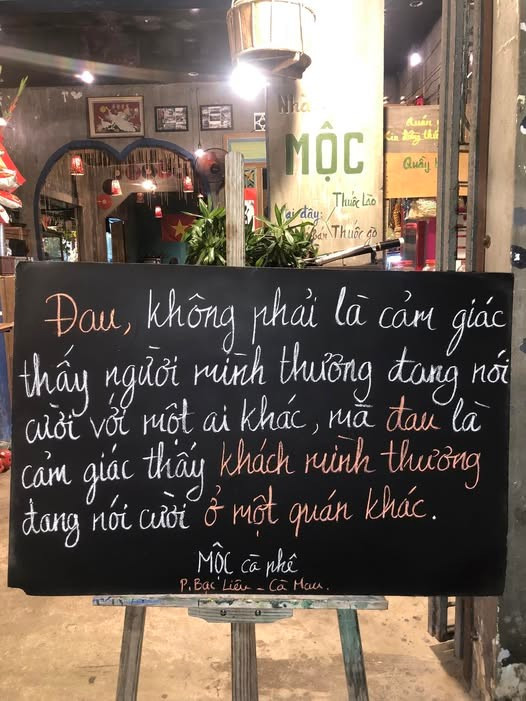 MỘC
Thuốc Lào
Thuốc gò
Quán
Quầy
Đau, không phải là cảm giác
thấy người mình thương đang nói
cười với một ai khác, mà đau là
cảm giác thấy khách mình thương
đang nói cười ở một quán khác.
MỘC cà phê
P. Bạc Liêu - Cà Mau.